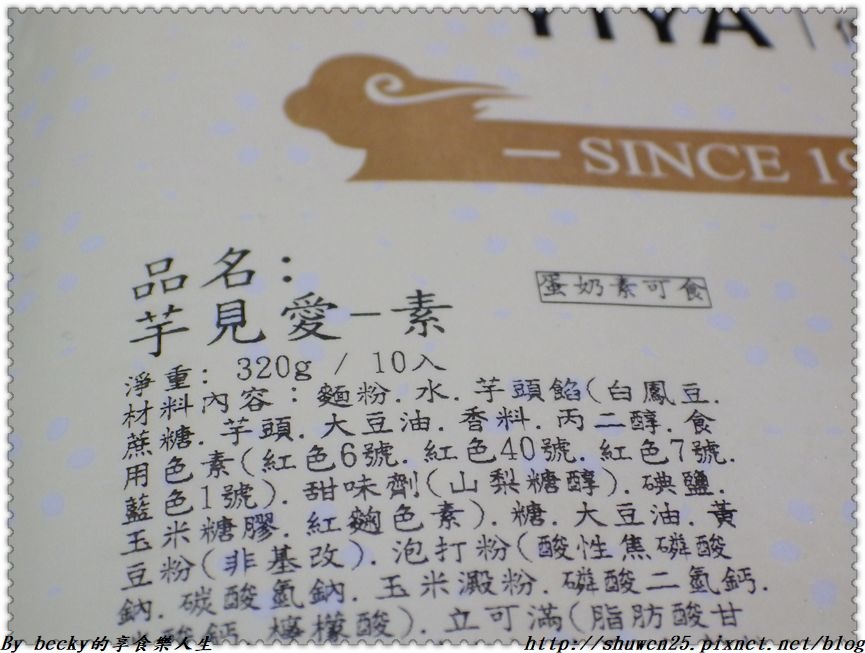 YIYA
SINCE 19
品名:
蛋奶素可食
芋見愛-素
淨重: 320g / 10入
材料內容:麵粉.水.芋頭餡(白鳳豆.
蔗糖.芋頭.大豆油.香料.丙二醇.食
用色素(紅色6號.紅色40號.紅色7號.
藍色1號).甜味劑(山梨糖醇).碘鹽.
玉米糖膠.紅麴色素).糖.大豆油.黃
豆粉(非基改).泡打粉(酸性焦磷酸
鈉.碳酸氫鈉.玉米澱粉.磷酸二氫鈣.
酸鈣.檸檬酸).立可滿(脂肪酸甘
By becky的享食樂人生
http://shuwen25.pixnet.net/blog